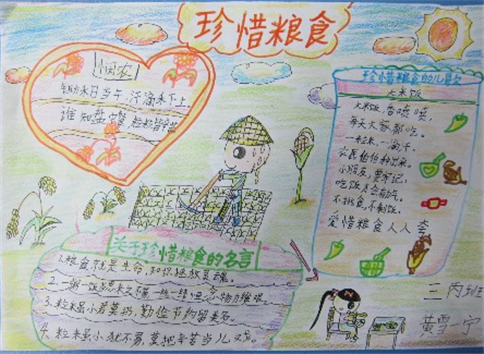 珍惜粮食
悯农
锄禾日当午 汗滴禾下土
谁知盘中餐 粒粒皆辛苦
珍惜粮食的儿歌
大米饭
大米饭,香喷喷,
每天大家都吃。
一粒米,一滴汗,
农民伯伯种出来。
小朋友,要牢记,
吃饭
不挑食,不剩饭,
爱惜粮食人人夸
关于珍惜粮食的名言
1.粮食就是生命,知识
2.一粥一饭当思来之不易,半丝半缕 物力维艰。
3.粒米虽小君莫扔,勤俭节约留美名。
4.粒米虽小犹不易,莫把辛苦当儿戏。
三丙班
黄雪宁